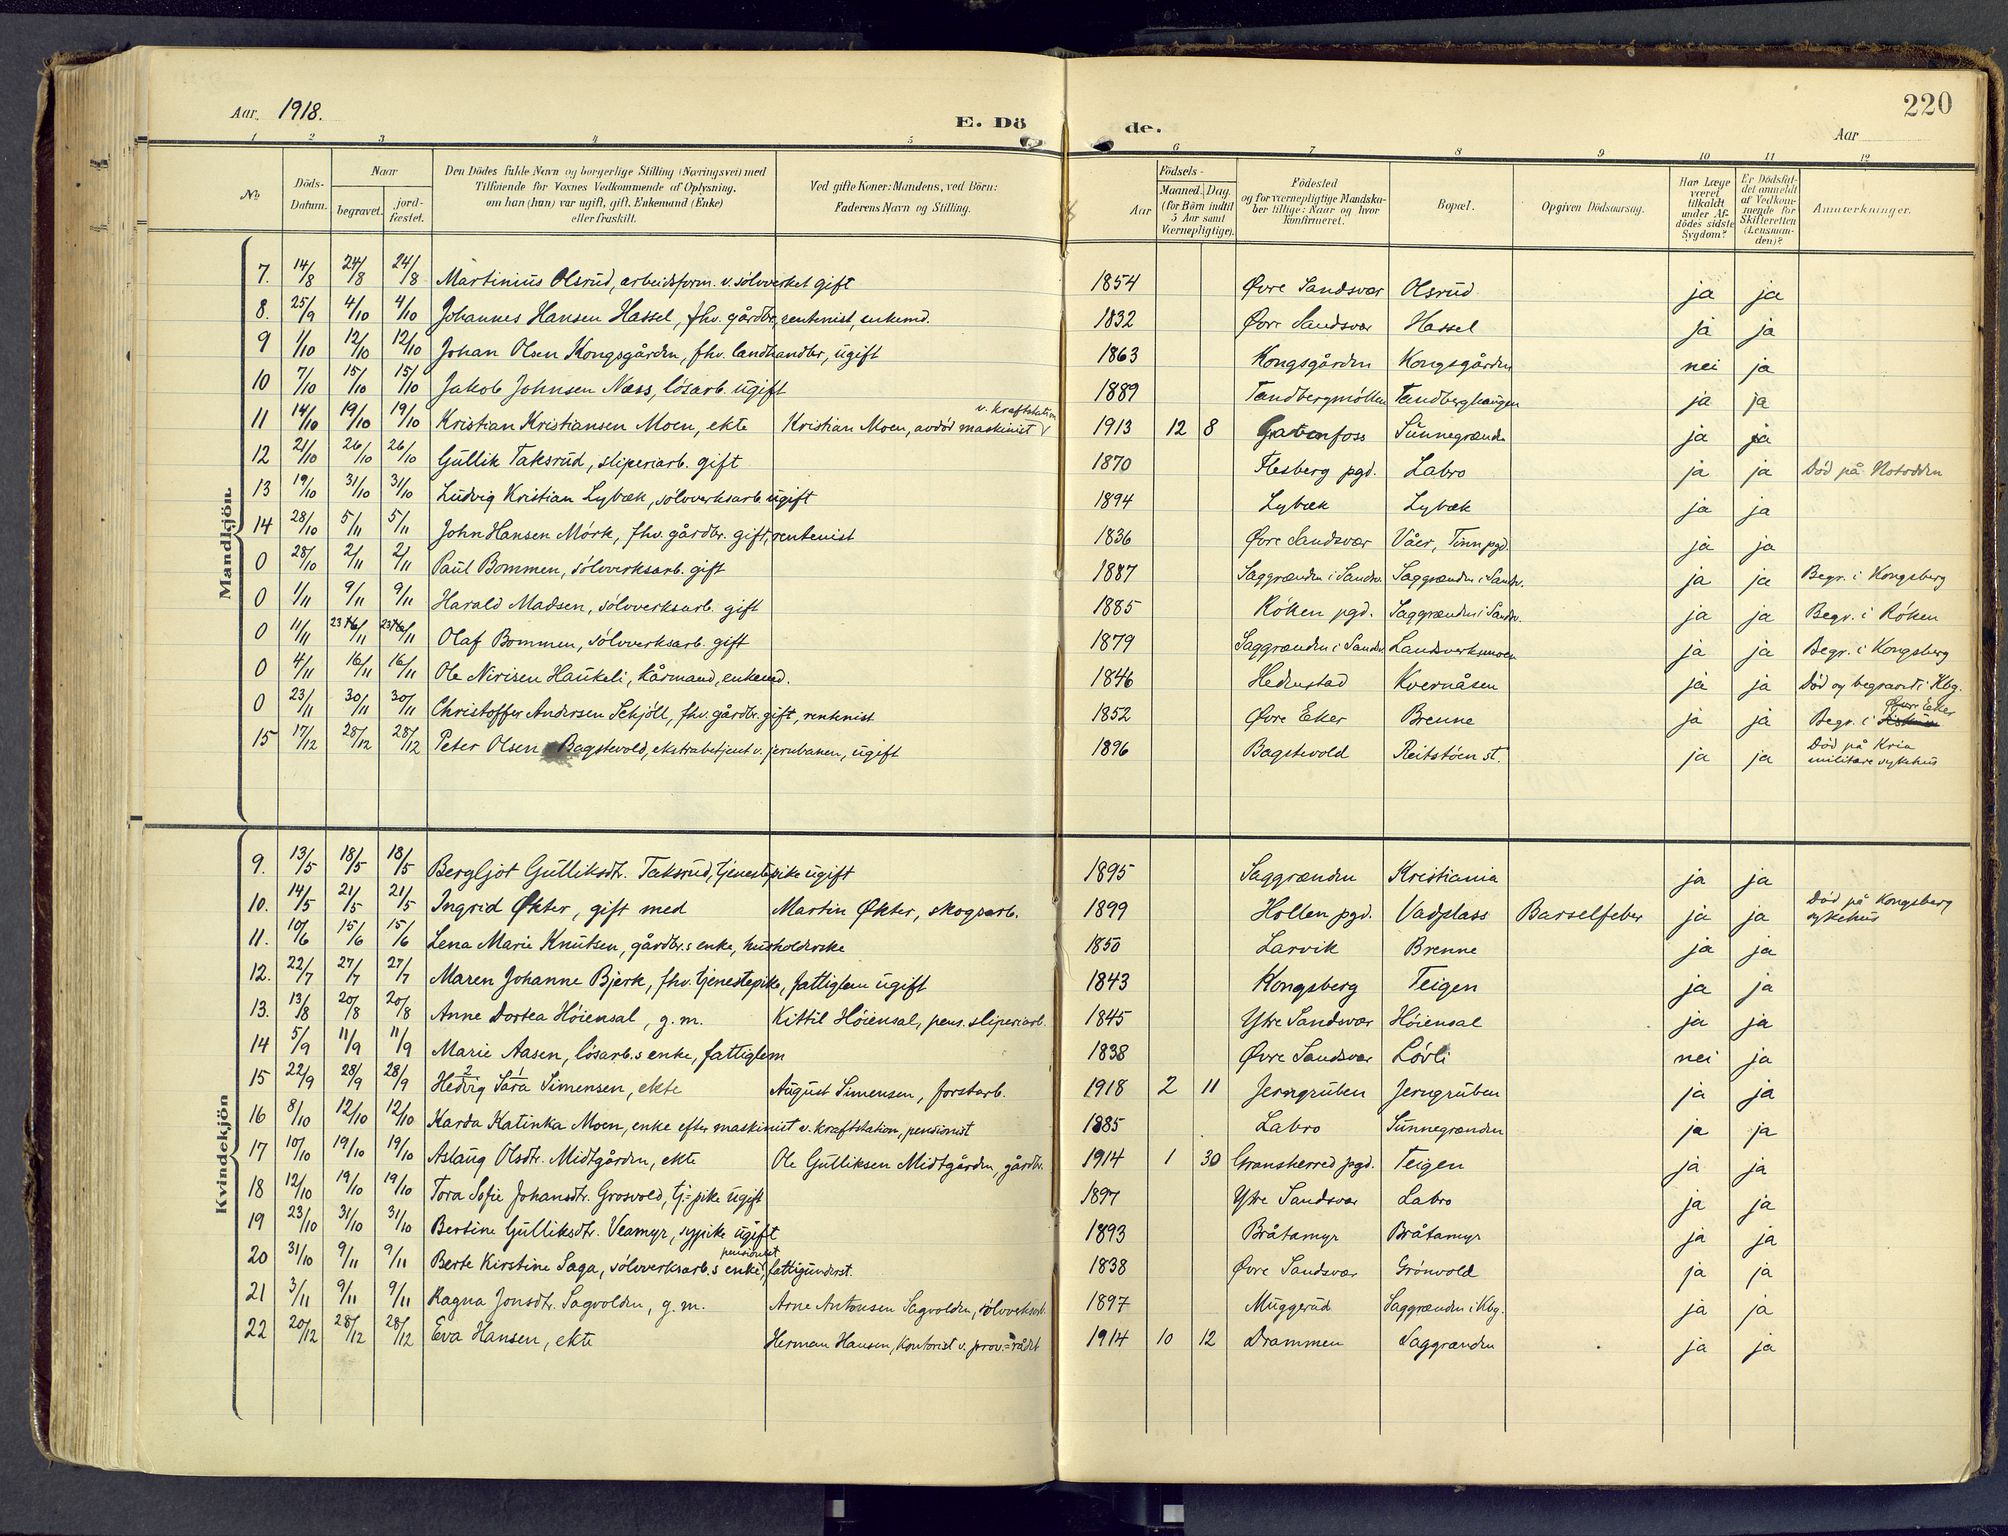 Aar. 1918.
E. Dö de.
220
Aar
1 2 3 4 5 6 7 8 9 10 11 12
No. Döds-Datum. Naar begravet. jordfæstet. Den Dödes fulde Navn og borgerlige Stilling (Næringsvei) med Tilföiende for Voxnes Vedkommende af Oplysning, om han (hun) var ugift, gift, Enkemand (Enke) eller fraskilt. Ved gifte Koner: Mandens, ved Börn: Faderens Navn og Stilling. Födsels- Aar Maaned. Dag. (for Börn indtil 5 Aar samt Værnepligtige). Födested og for værnepligtige Mandskaber tillige: Naar og hvor konfirmeret. Bopæl. Opgiven Dödsaarsag. Har Læge været tilkaldt under Afdödes sidste Sygdom? Er Dödsfaldet anmeldt af Vedkommende for Skifteretten (Lensmanden)? Anmærkninger.
Mandkjön.
7. 14/8 24/8 24/8 Martinius Olsrud, arbeidsform. v. sölvverket gift 1854 Øvre Sandsvær Olsrud ja ja
8. 25/9 4/10 4/10 Johannes Hansen Hassel, fhv. gårdbr., rentenist, enkemd. 1832 Øvre Sandsvær Hassel ja ja
9 1/10 12/10 12/10 Johan Olsen Kongsgården, fhv. landhandlr, ugift 1863 Kongsgården Kongsgården nei ja
10 7/10 15/10 15/10 Jakob Johnsen Næss, lösarb. ugift 1889 Tandbergmöllen Tandberghaugen ja ja
11 14/10 19/10 19/10 Kristian Kristiansen Moen, ekte Kristian Moen, avdöd maskinist v. kraftstation 1913 12 8 Sunnegrænden ja ja
12 21/10 26/10 26/10 Gullik Taksrud, sliperiarb. gift 1870 Flesberg pgd. Labro ja ja Död på Notodden
13 19/10 31/10 31/10 Ludvig Kristian Lybæk, sölvverksarb. ugift 1894 Lybæk Lybæk ja ja
14 28/10 5/11 5/11 John Hansen Mörk, fhv. gårdbr. gift, rentenist 1836 Øvre Sandsvær Våer, Tinn pgd. ja ja
0 28/10 2/11 2/11 Paul Bommen, sölvverksarb. gift 1887 Saggrænden i Sandsv. Saggrænden i Sandsv. ja ja Begr. i Kongsberg
0 1/11 9/11 9/11 Harald Madsen, sölvverksarb. gift 1885 Röken pgd. Saggrænden i Sandsv. ja ja Begr. i Röken
0 11/11 23/11 23/11 Olaf Bommen, sölvverksarb. gift 1879 Saggrænden i Sandsv. Landsverksmoen ja ja Begr. i Kongsberg
0 4/11 16/11 16/11 Ole Nirisen Haukeli, kårmand, enkemd. 1846 Hedenstad Kvernåsen ja ja Död og begravet i Kbg.
0 23/11 30/11 30/11 Christoffer Andersen Schjöll, fhv. gårdbr. gift, rentenist 1852 Øvre Eker Brenne ja ja Begr. i Øvre Eker
15 17/12 28/12 28/12 Peter Olsen Bagstevold, ekstrabetjent v. jernbanen, ugift 1896 Bagstevold Reitstöen st. ja ja Död på Kria militære sykehus
Kvindekjön
9. 13/5 18/5 18/5 Bergljot Gulliksdtr. Taksrud, tjenestepike ugift 1895 Saggrænden Kristiania ja ja
10. 14/5 21/5 21/5 Ingrid Økter, gift med Martin Økter, skogsarb. 1899 Hollen pgd. Vadplass Barselfeber ja ja Död på Kongsberg sykehus
11. 10/6 15/6 15/6 Lena Marie Knutsen, gårdbr.s enke, husholderske 1850 Larvik Brenne ja ja
12. 22/7 27/7 27/7 Maren Johanne Bjerk, fhv. tjenestepike, fattiglem ugift 1843 Kongsberg Teigen ja ja
13. 13/8 20/8 20/8 Anne Dortea Höiensal, g. m. Kittil Höiensal, pens. sliperiarb. 1845 Ytre Sandsvær Höiensal ja ja
14 5/9 11/9 11/9 Marie Aasen, lösarb.s enke, fattiglem 1838 Øvre Sandsvær Lövli nei ja
15 22/9 28/9 28/9 Hedvig Sara Simensen, ekte August Simensen, forstarb. 1918 2 11 Jerngruben Jerngruben ja ja
16 8/10 12/10 12/10 Karda Katinka Moen, enke efter maskinist v. kraftstation, pensionist 1885 Labro Sunnegrænden ja ja
17 10/10 19/10 19/10 Aslaug Olsdtr. Midtgården, ekte Ole Gulliksen Midtgården, gårdbr. 1914 1 30 Gransherred pgd. Teigen ja ja
18 12/10 19/10 19/10 Tora Sofie Johansdtr. Grosvold, tj.=pike ugift 1897 Ytre Sandsvær Labro ja ja
19 23/10 31/10 31/10 Bertine Gulliksdtr. Veamyr, sypike ugift 1893 Bråtamyr Bråtamyr ja ja
20 31/10 9/11 9/11 Berte Kirstine Saga, sölvverksarb.s enke, pensionist, fattigunderst. 1838 Øvre Sandsvær Grönvold ja ja
21 3/11 9/11 9/11 Ragna Jonsdtr. Sagvolden, g. m. Arne Antonsen Sagvolden, sölvverksarb. 1897 Muggerud Saggrænden i Kbg. ja ja
22 20/12 28/12 28/12 Eva Hansen, ekte Herman Hansen, kontorist v. prov.=rådet 1914 10 12 Drammen Saggrænden ja ja